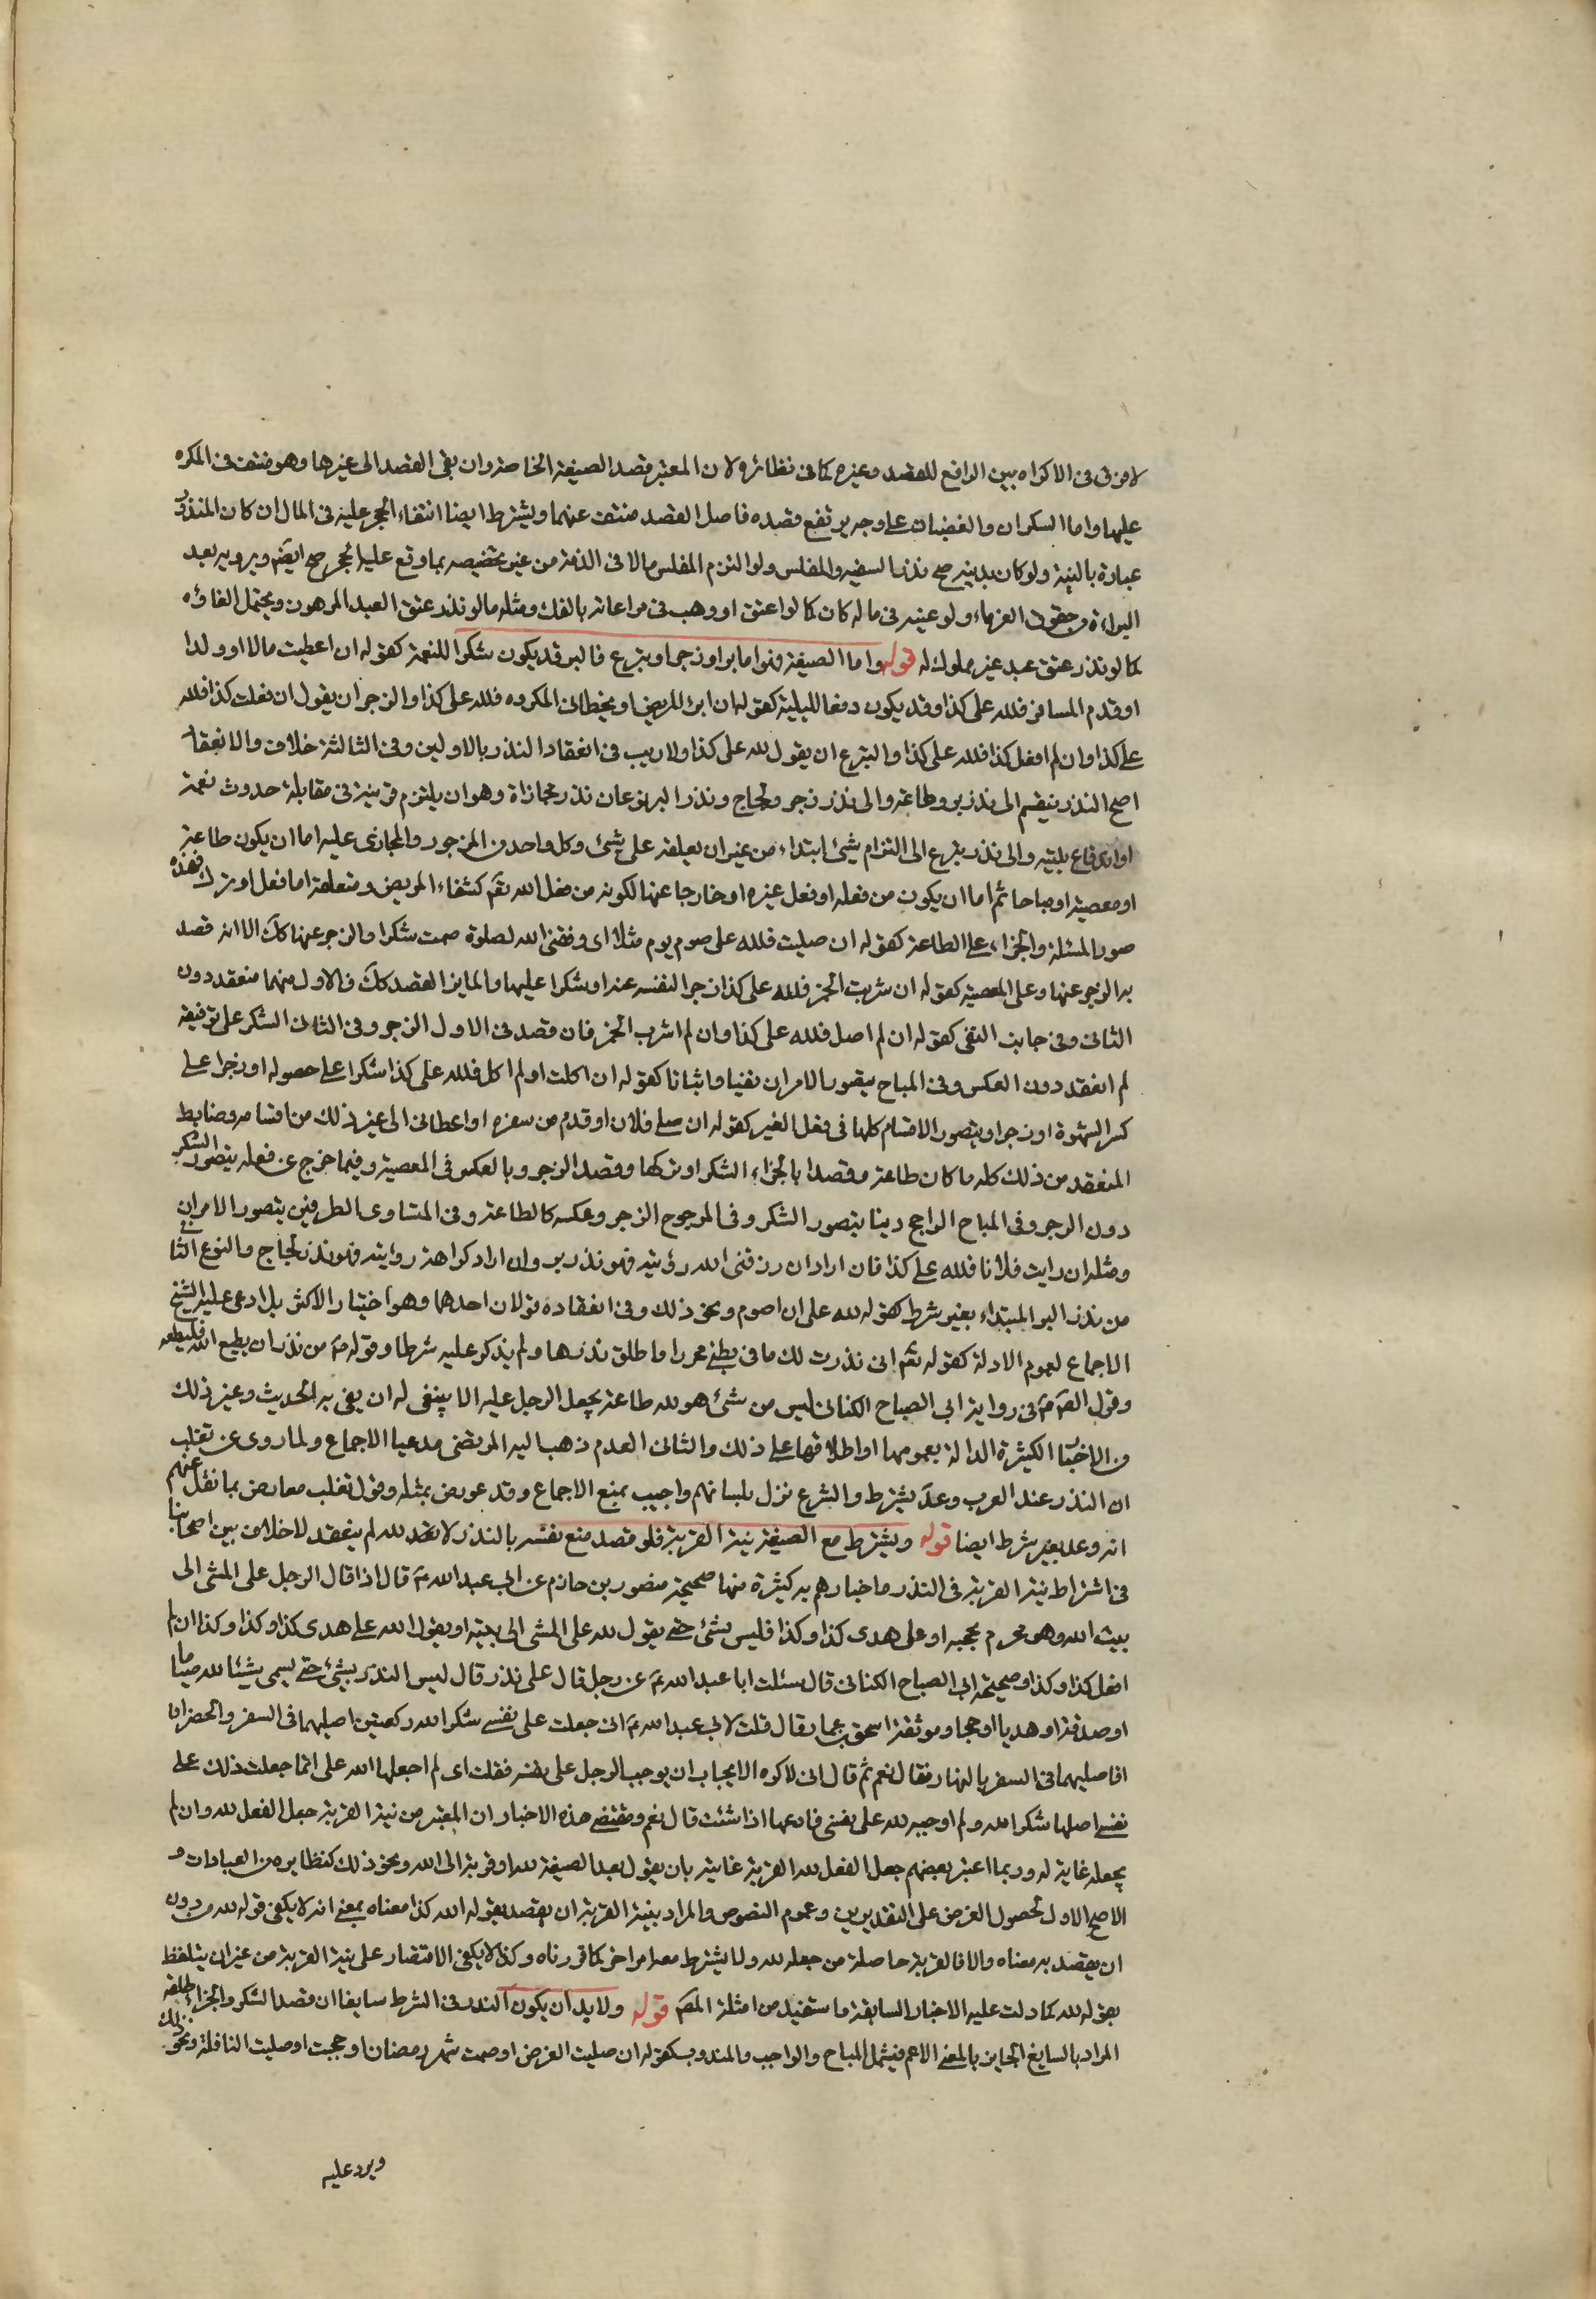 لا فرق فى الاكراه بين الرافع للقصد وغيره كما فى نظائره ولان المعتبر قصد الصيغة الخاصة وان بقى القصد الى غيرها وهو منتف فى المكره
عليها واما السكران والغضبان على وجه يرتفع قصده فاصل القصد منتف عنهما ويشترط ايضا انتفاء الحجر عليه فى المال ان كان المنذور
عبادة بالنية ولو كان بدنية صح نذر السفيه والمفلس ولو التزم المفلس مالا فى الذمة من غير تخصيصه بما وقع عليه الحجر صح ايضم ويؤديه بعد
البراءة من حقوق الغرماء ولو عينه فى ماله كان كما لو اعتق او وهب فى مراعاته بالفك ومثله ما لو نذر عتق العبد المرهون ويحتمل الغاؤه
كما لو نذر عتق عبد غير مملوك له قوله واما الصيغة فهو اما بر او زجر او تبرع فالبر قد يكون شكرا للنعمة كقوله ان اعطيت مالا او ولدا
او قدم المسافر فلله على كذا وقد يكون دفعا للبلية كقوله ان ابرئ المريض او تخطانى المكروه فلله على كذا والزجر ان يقول ان فعلت كذا فلله
على كذا وان لم افعل كذا فلله على كذا والتبرع ان يقول لله على كذا ولا ريب فى انعقاد النذر بالاولين وفى الثالثة خلاف والانعقاد
اصح النذر ينقسم الى نذر بر وطاعة والى نذر زجر ولجاج ونذر البر نوعان نذر مجازاة وهو ان يلتزم قربة فى مقابلة حدوث نعمة
او اندفاع بلية والى نذر تبرع اى التزام شئ ابتداء من غير ان يعلقه على شئ وكل واحد من المزجور والمجازى عليه اما ان يكون طاعة
او معصية او مباحا ثم اما ان يكون من فعله او فعل غيره او خارجا عنها لكونه من فعل الله تعم كشفاء المريض ومتعلقه اما فعل او ترك فهذه
صور المسئلة والجزاء على الطاعة كقوله ان صليت فلله على صوم يوم مثلا اى وفقنى الله لصلوة صمت شكرا والزجر عنها كك الا انه قصد
به الزجر عنها وعلى المعصية كقوله ان شربت الخمر فلله على كذا زجرا لنفسه عنه او شكرا عليها والمايز القصد كك فالاول منهما منعقد دون
الثانى وفى جانب النفى كقوله ان لم اصل فلله على كذا وان لم اشرب الخمر فان قصد فى الاول الزجر وفى الثانى الشكر على توفيقه
لم انعقد دون العكس وفى المباح يتصور الامران نفيا واثباتا كقوله ان اكلت او لم اكل فلله على كذا شكرا على حصوله او زجرا على
كسر الشهوة او زجرا ويتصور الاقسام كلها فى فعل الغير كقوله ان صلى فلان او قدم من سفره او اعطانى الى غير ذلك من اقسامه وضابط
المنعقد من ذلك كله ما كان طاعة وقصدا بالجزاء الشكر او تركها وقصد الزجر وبالعكس فى المعصية وفيما خرج عن فعله يتصور الشكر
دون الزجر وفى المباح الراجح دينا يتصور الشكر وفى المرجوح الزجر وعكسه كالطاعة وفى المتساوى الطرفين يتصور الامران
ومثله ان رايت فلانا فلله على كذا فان اراد ان رزقنى الله رؤيته فهو نذر بر وان اراد كراهة رؤيته فهو نذر لجاج والنوع الثانى
من نذر البر المبتداء بغير شرط كقوله لله على ان اصوم ونحو ذلك وفى انعقاده قولان احدهما وهو اختيار الاكثر بل ادعى عليه الشيخ
الاجماع لعموم الادلة كقوله تعم انى نذرت لك ما فى بطنى محررا فاطلق نذرها ولم يذكر عليه شرطا وقوله ص من نذر ان يطيع الله فليطعه
وقول الصم ع فى رواية ابى الصباح الكنانى ليس من شئ هو لله طاعة يجعل الرجل عليه الا ينبغى له ان يفى به الحديث وغير ذلك
من الاخبار الكثيرة الدالة بعمومها او اطلاقها على ذلك والثانى العدم ذهب اليه المرتضى مدعيا الاجماع ولما روى عن تغلب
ان النذر عند العرب وعد بشرط والشرع نزل بلسانهم واجيب بمنع الاجماع وقد عورض بمثله وقول تغلب معارض بما نقل عنهم
انه وعد بغير شرط ايضا قوله ويشترط مع الصيغة نية القربة فلو قصد منع نفسه بالنذر لا لله لم ينعقد لا خلاف بين اصحابنا
فى اشتراط نية القربة فى النذر واخبارهم به كثيرة منها صحيحة منصور بن حازم عن ابى عبد الله ع قال اذا قال الرجل على المشى الى
بيت الله وهو محرم بحجة او على هدى كذا وكذا فليس بشئ حتى يقول لله على المشى الى بيته او يقول لله على هدى كذا وكذا ان لم
افعل كذا وكذا وصحيحة ابى الصباح الكنانى قال سئلت ابا عبد الله ع عن رجل قال على نذر قال ليس النذر بشئ حتى يسمى شيئا لله صياما
او صدقة او هديا او حجا وموثقة اسحق بن عمار قال قلت لابى عبد الله ع انى جعلت على نفسى شكرا لله ركعتين اصليهما فى السفر والحضر
افاصليهما فى السفر بالنهار فقال نعم ثم قال انى لاكره الايجاب ان يوجب الرجل على نفسه فقلت انى لم اجعلهما لله على انما جعلت ذلك على
نفسى اصليها شكرا لله ولم اوجبه لله على نفسى فادعها اذا شئت قال نعم ومقتضى هذه الاخبار ان المعتبر من نية القربة جعل الفعل لله وان لم
يجعله غاية له وربما اعتبر بعضهم جعل الفعل لله القربة غاية بان يقول بعد الصيغة لله او قربة الى الله ونحو ذلك كنظايره من العبادات و
الاصح الاول لحصول الغرض على التقديرين وعموم النصوص والمراد بنية القربة ان يقصد بقوله لله كذا معناه بمعنى انه لا يكفى قوله لله من دون
ان يقصد به معناه والا فالقربة حاصلة من جعله لله ولا يشترط معه امر اخر كما قررناه وكذا لا يكفى الاقتصار على نية القربة من غير ان يتلفظ
بقوله لله كما دلت عليه الاخبار السابقة ما ستفيد من امثلة المصم قوله ولا بد ان يكون النذر فى الشرط سايغا ان قصد الشكر والجزاء طلقه
المراد بالسايغ الجايز بالمعنى الاعم فيشمل المباح والواجب والمندوب كقوله ان صليت الفرض او صمت شهر رمضان او حججت او صليت النافلة ونحو ذلك
ويرد عليه